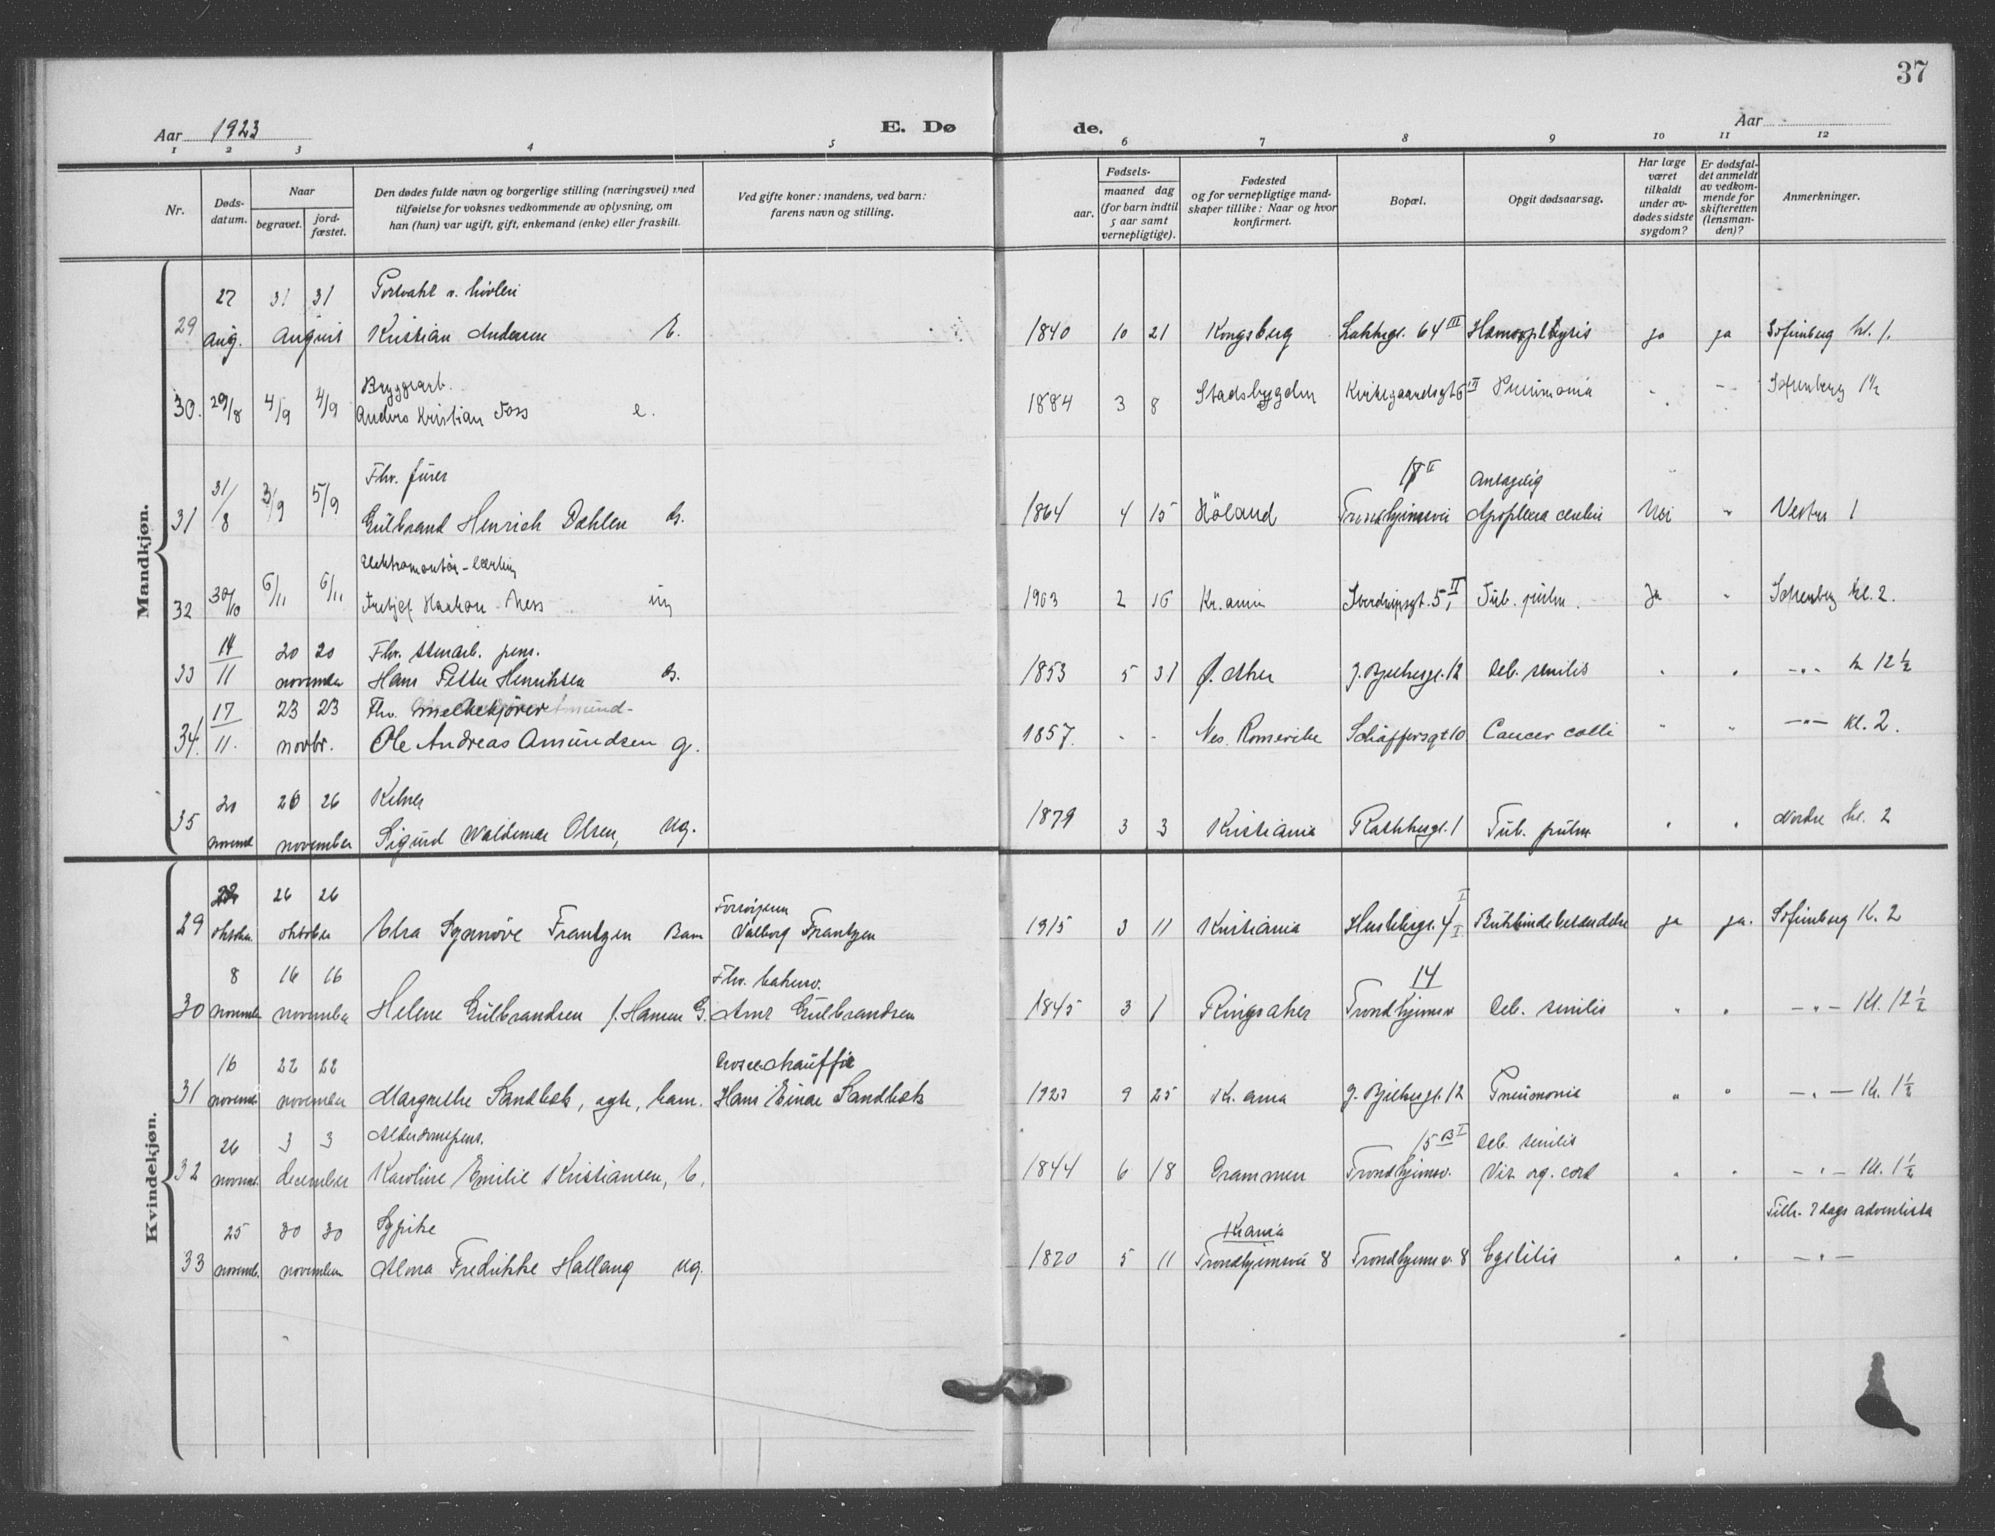 37
Aar 1923
E. Dø
de.
Aar
1 2 3 4 5 6 7 8 9 10 11 12
Nr.
Døds-
datum.
Naar
begravet.
jord-
fæstet.
Den dødes fulde navn og borgerlige stilling (næringsvei) med
tilføielse for voksnes vedkommende av oplysning, om
han (hun) var ugift, gift, enkemand (enke) eller fraskilt.
Ved gifte koner: mandens, ved barn:
farens navn og stilling.
Fødsels-
aar.
maaned dag
(for barn indtil
5 aar samt
vernepligtige).
Fødested
og for vernepligtige mand-
skaper tillike: Naar og hvor
konfirmert.
Bopæl.
Opgit dødsaarsag.
Har læge
været
tilkaldt
under av-
dødes sidste
sygdom?
Er dødsfal-
det anmeldt
av vedkom-
mende for
skifteretten
(lensman-
den)?
Anmerkninger.
Mandkjøn.
27 31 31
29 aug. august Kristian Andersen E. 1840 10 21 Kongsberg 64 III ja ja Sofienberg kl. 1.
Bryggearb.
30. 29/8 4/9 4/9 Anders Kristian Foss e. 1884 3 8 Stadsbygden Kirkegaardsgt 6 III Pneumonia - - Sofienberg 1½
Fhv. furer 18 II Antagelig
31 31/8 3/9 5/9 Gulbrand Henrich Dahlen G. 1864 4 15 Höland Trondhjemsvei Apoplexia Nei " Vestre 1
Elektromontør-Lærling
32 30/10 6/11 6/11 Fritjof Haakon Ness ug 1903 2 16 Kr.ania Sverdrupsgt. 5, II Tub. pulm. Ja " Sofienberg kl. 2.
Fhv. stenarb. pens.
33 14/11 20 20 november Hans Petter Henriksen G. 1853 5 31 Ø. Aker J. Bjelkesgt. 12 Deb. senilis " " -"- k 12½
Fhv. melkekjører
34. 17/11. 23 23 novbr. Ole Andreas Amundsen g. 1857. - - Nes Romerike Schäffersgt 10 Cancer colli " " -"- kl. 2.
20 26 26 Kelner
35 novemb november Sigurd Waldemar Olsen, ug. 1879 3 3 Kristiania Rathkesgt. 1 Tub. pulm " " Nordre kl. 2
Kvindekjøn.
26 26 Forsörgeren
29 oktober oktober Synnöve Frantzen Barn Valborg Frantzen 1915 3 11 Kristiania 4 I ja ja. Sofienberg K. 2
8 16 16 Fhv. 14
30 november november Helene Gulbrandsen f. Hansen G. Arne Gulbrandsen 1845 3 1 Ringsaker Trondhjemsv Deb. senilis " " -"- Kl. 12½
16 22 22
31 novemb november Margrethe Sandbæk, egte, barn. Hans Einar Sandbæk 1923 9 25 Kr. ania J. Bjelkesgt. 12 Pneumonia " " -"- Kl. 1½
26 3 3 Alderdomspens. 15 B I Deb. senilis
32 novemb. december Karoline Emilie Kristiansen, E. 1844 6 18 Drammen Trondhjemsv. Vit. org. cord " " -"- Kl. 1½
25 30 30 Sypike Kr.ania Tilh. 7 dags adventista
33 novemb. november Alma Fredrikke Hallang ug. 1870 5 11 Trondhjemsvei 8 Trondhjems v. 8 Cystitis " " -"-